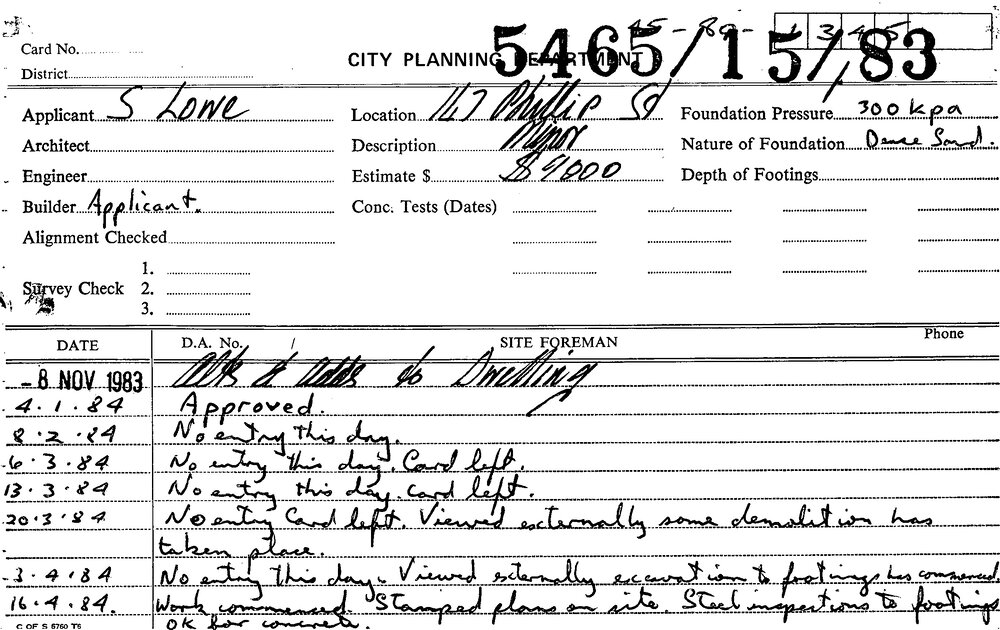 45-89-1345
5465/15/83
Card No.
CITY PLANNING DEPARTMENT
District
Applicant S Lowe Location 147 Phillip St Foundation Pressure 300 kpa
Architect Description Minor Nature of Foundation Dense Sand.
Engineer Estimate $ $9000 Depth of Footings
Builder Applicant. Conc. Tests (Dates)
Alignment Checked
1.
Survey Check 2.
3.
DATE D.A. No. / SITE FOREMAN Phone
-8 NOV 1983 Alts & Adds to Dwelling
4.1.84 Approved.
8.2.84 No entry this day.
6.3.84 No entry this day. Card left.
13.3.84 No entry this day. Card left.
20.3.84 No entry Card left. Viewed externally some demolition has
taken place.
3.4.84 No entry this day. Viewed externally excavation to footings has commenced
16.4.84. Work commenced. Stamped plans on site. Steel inspections to footings
OK for concrete.
C OF S 6760 T6